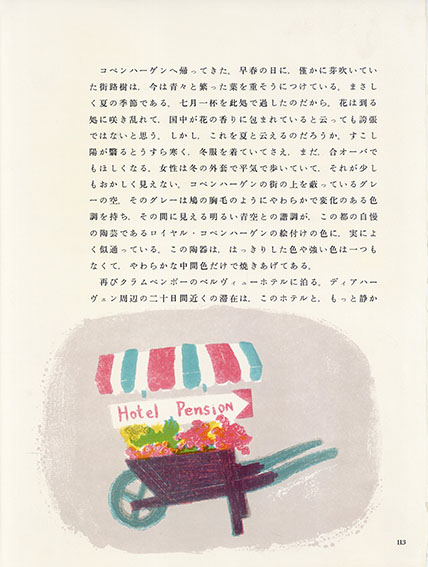 コペンハーゲンへ帰ってきた。早春の日に、僅かに芽吹いてい
た街路樹は、今は青々と繁った葉を重そうにつけている。まさし
く夏の季節である。七月一杯を此処で過したのだから、花は到る
処に咲き乱れて、国中が花の香りに包まれていると云っても誇張
ではないと思う。しかし、これを夏と云えるのだろうか。すこし
陽が翳るとうすら寒く、冬服を着ていてさえ、まだ、合オーバで
もほしくなる。女性は冬の外套で平気で歩いていて、それが少し
もおかしく見えない。コペンハーゲンの街の上を蔽っているグレ
ーの空。そのグレーは鳩の胸毛のようにやわらかで変化のある色
調を持ち、その間に見える明るい青空との諧調が、この都の自慢
の陶芸であるロイヤル・コペンハーゲンの絵付けの色に、実によ
く似通っている。この陶器は、はっきりした色や強い色は一つも
なくて、やわらかな中間色だけで焼きあげてある。
再びクラムペンボーのベルヴィューホテルに泊る。ディアハー
ヴェン周辺の二十日間近くの滞在は、このホテルと、もっと静か
Hotel Pension
113